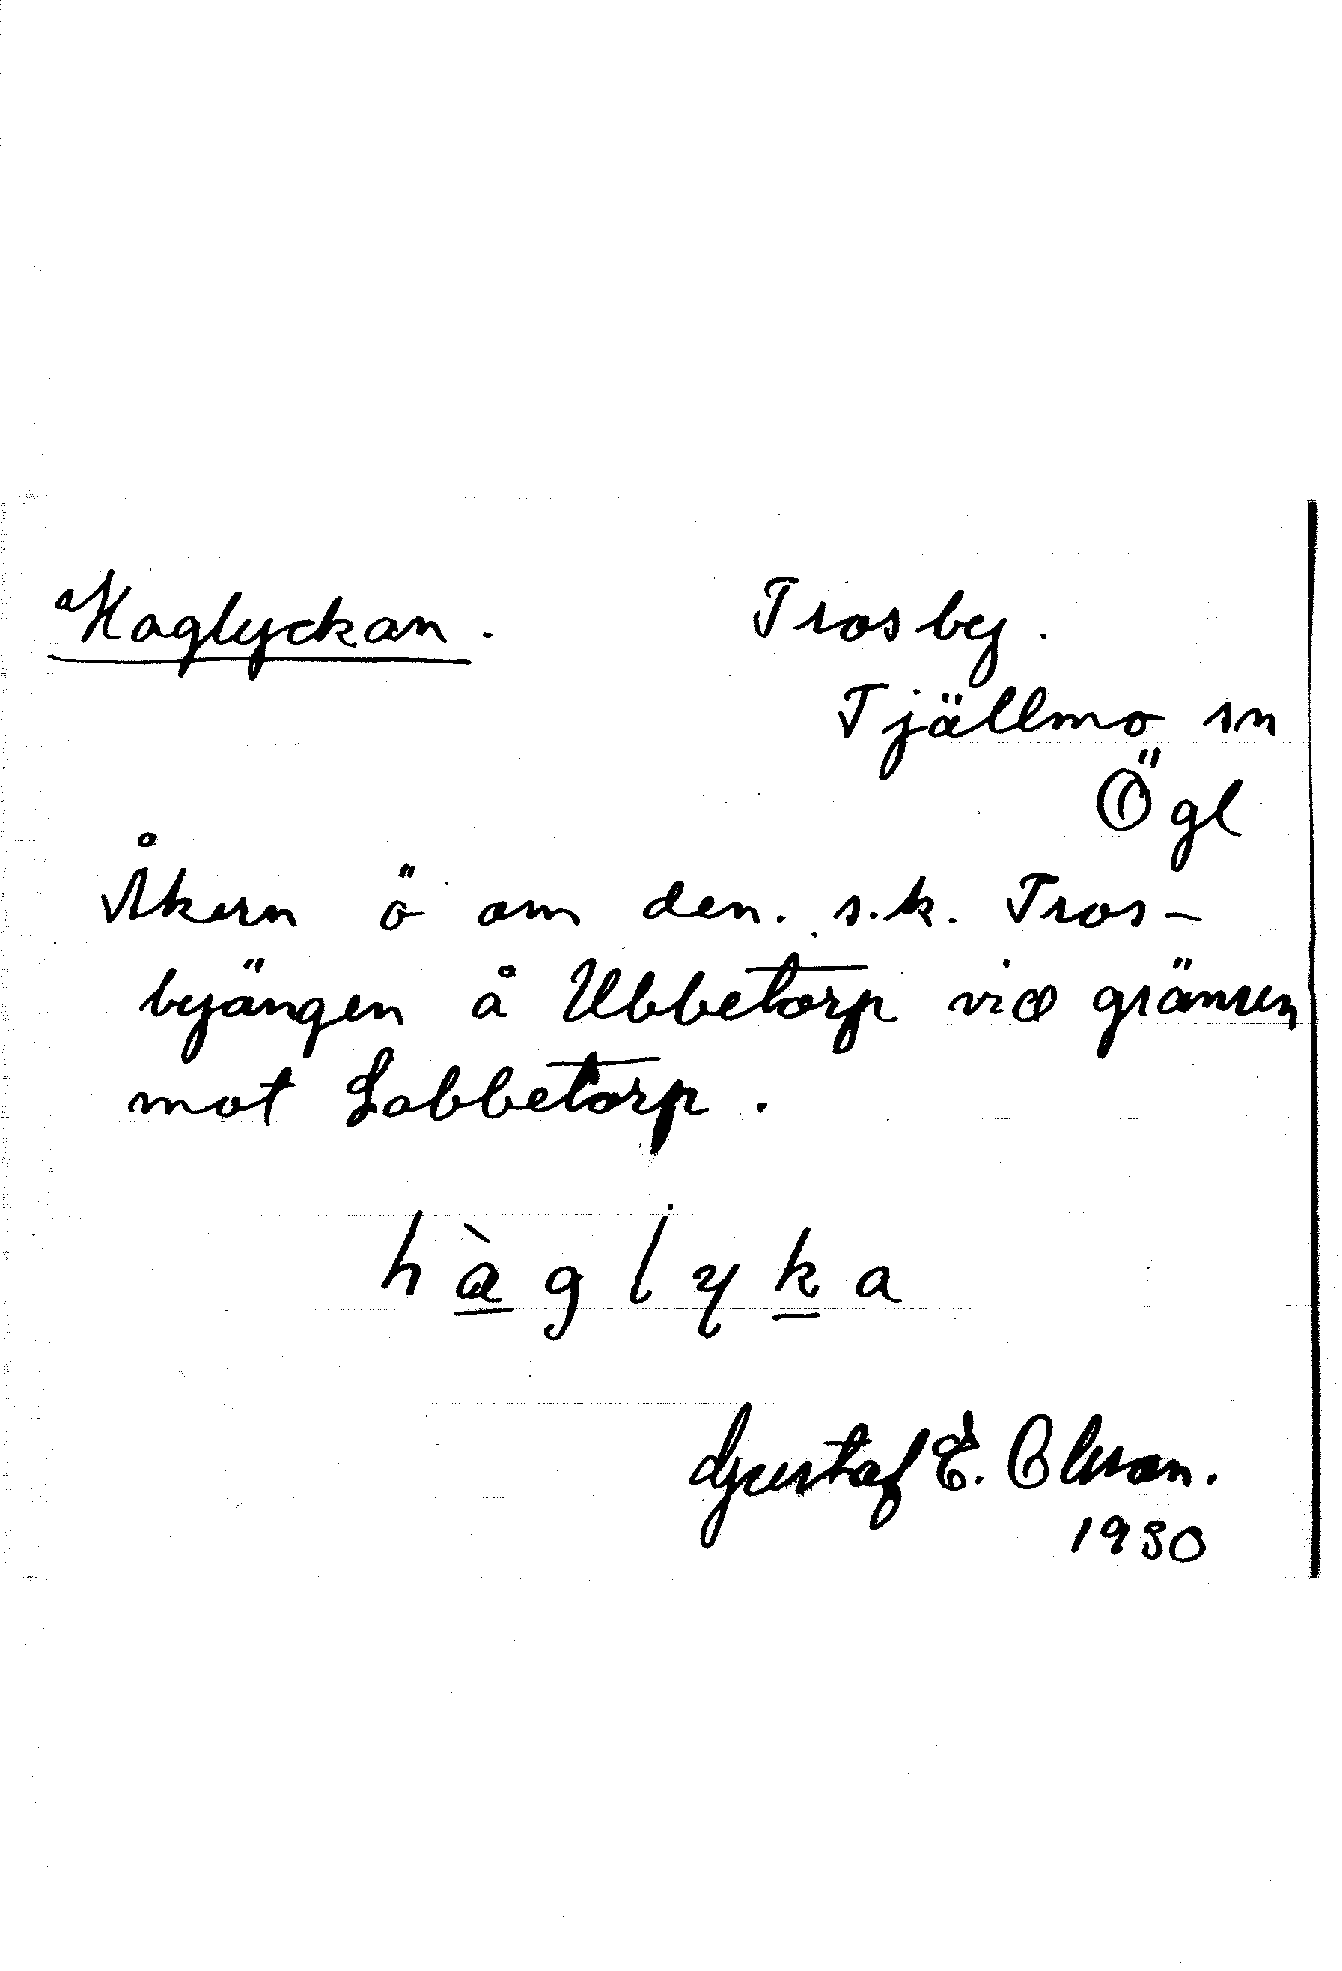 aHaglyckan. Trosby.
Tjällmo sn
Ögl
Åkern ö om den. s.k. Tros-
byängen å Ubbetorp vid gränsen
mot Labbetorp.
hàglyka
Gustaf E. Olsson.
1930